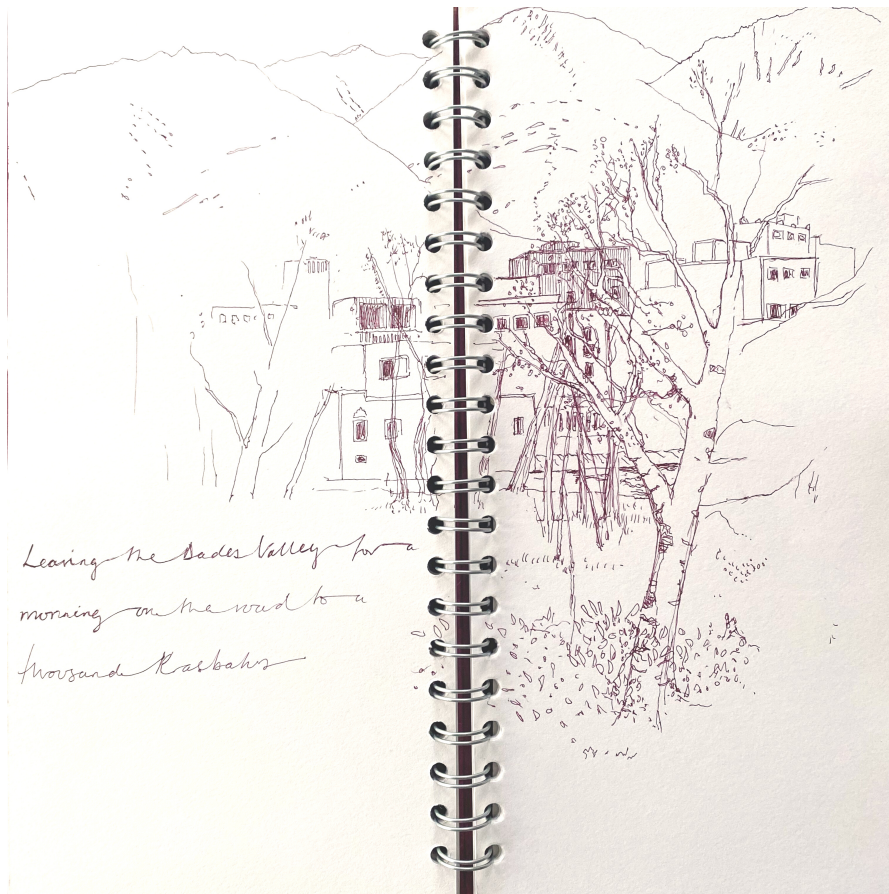 Leaving the Dades Valley for a
morning on the road to a
thousand Kasbahs